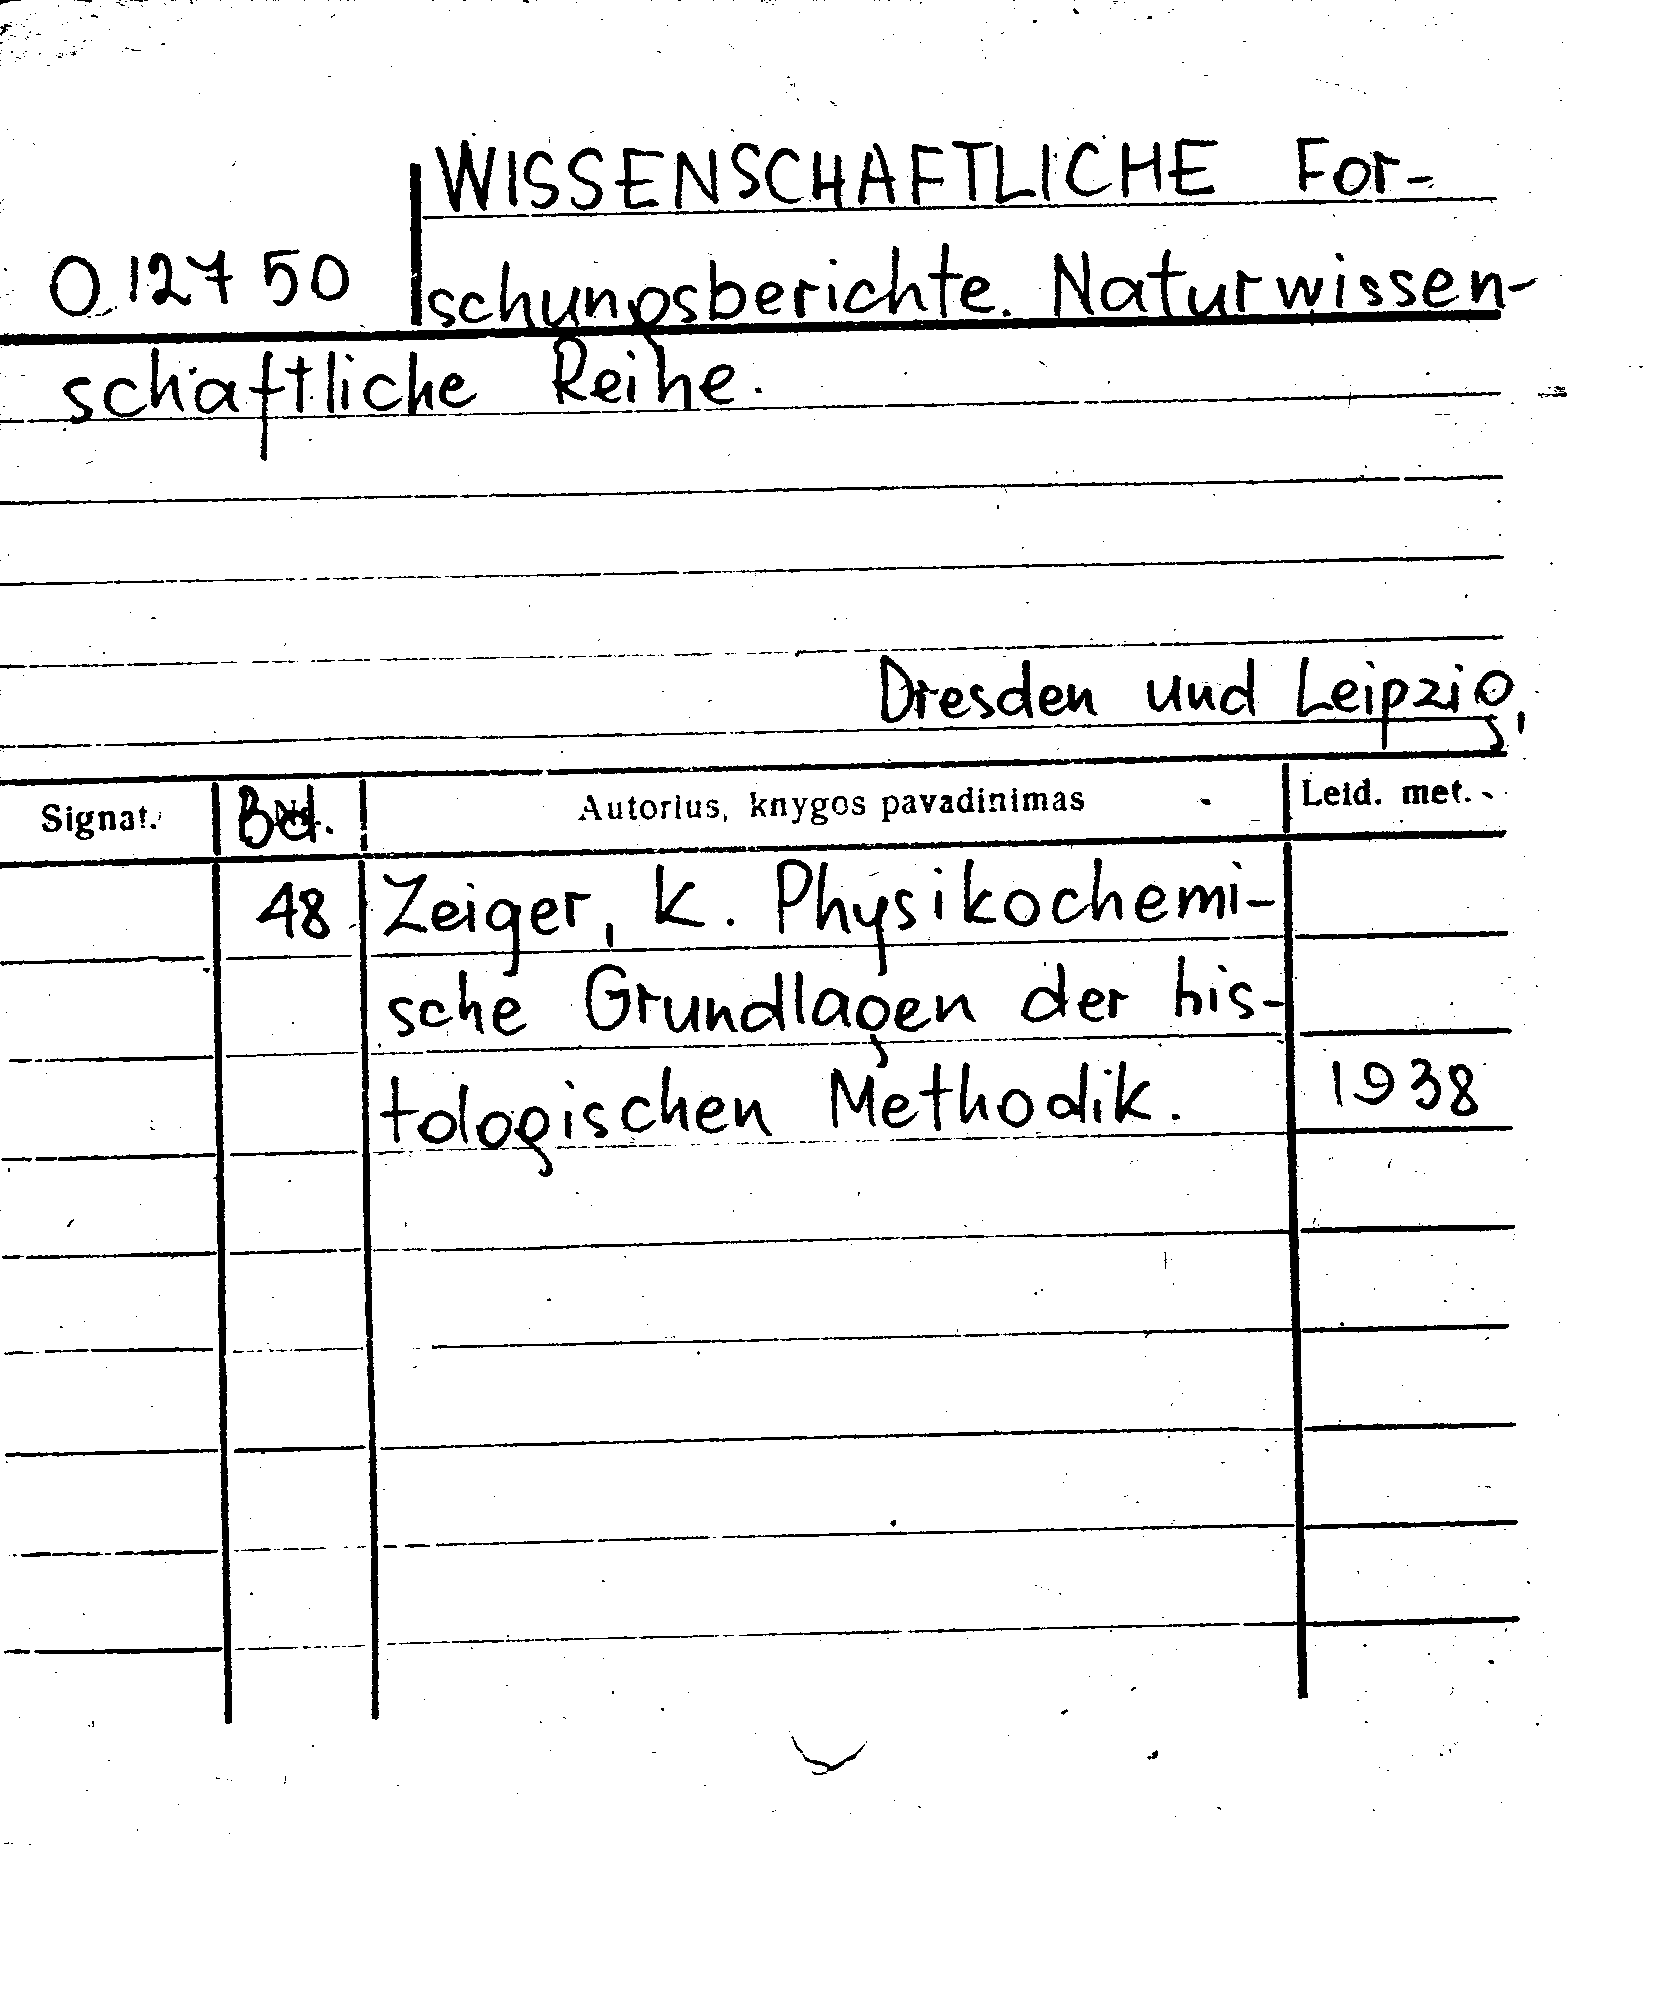 WISSENSCHAFTLICHE For-
0.12750 schungsberichte. Naturwissen-
schaftliche Reihe.
Dresden und Leipzig,
Signat. Bd. Autorius, knygos pavadinimas Leid. met.
48 Zeiger, K. Physikochemi-
sche Grundlagen der his-
tologischen Methodik. 1938